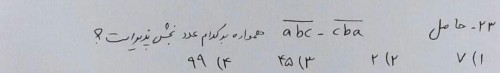 ۲۳- حاصل $\overline{abc} - \overline{cba}$ همواره بر کدام عدد بخش پذیر است؟
۱) ۷ ۲) ۲ ۳) ۴۵ ۴) ۹۹